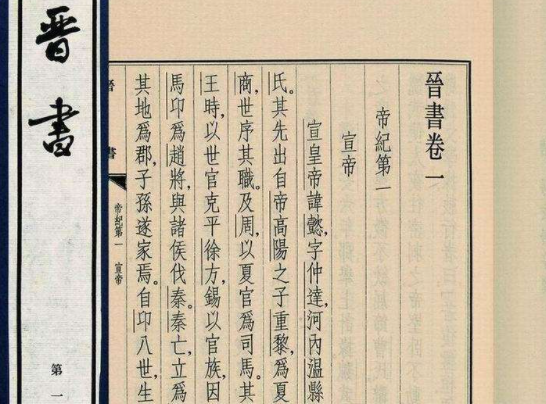 晉書
第一
晉書卷一
帝紀第一
宣帝
宣皇帝諱懿,字仲達,河內溫縣
氏。其先出自帝高陽之子重黎,爲夏
商,世序其職。及周,以夏官爲司馬。其
王時,以世官克平徐方,錫以官族,因
馬卬爲趙將,與諸侯伐秦。秦亡,立爲
其地爲郡,子孫遂家焉。自卬八世,生
書
帝紀第一 宣帝